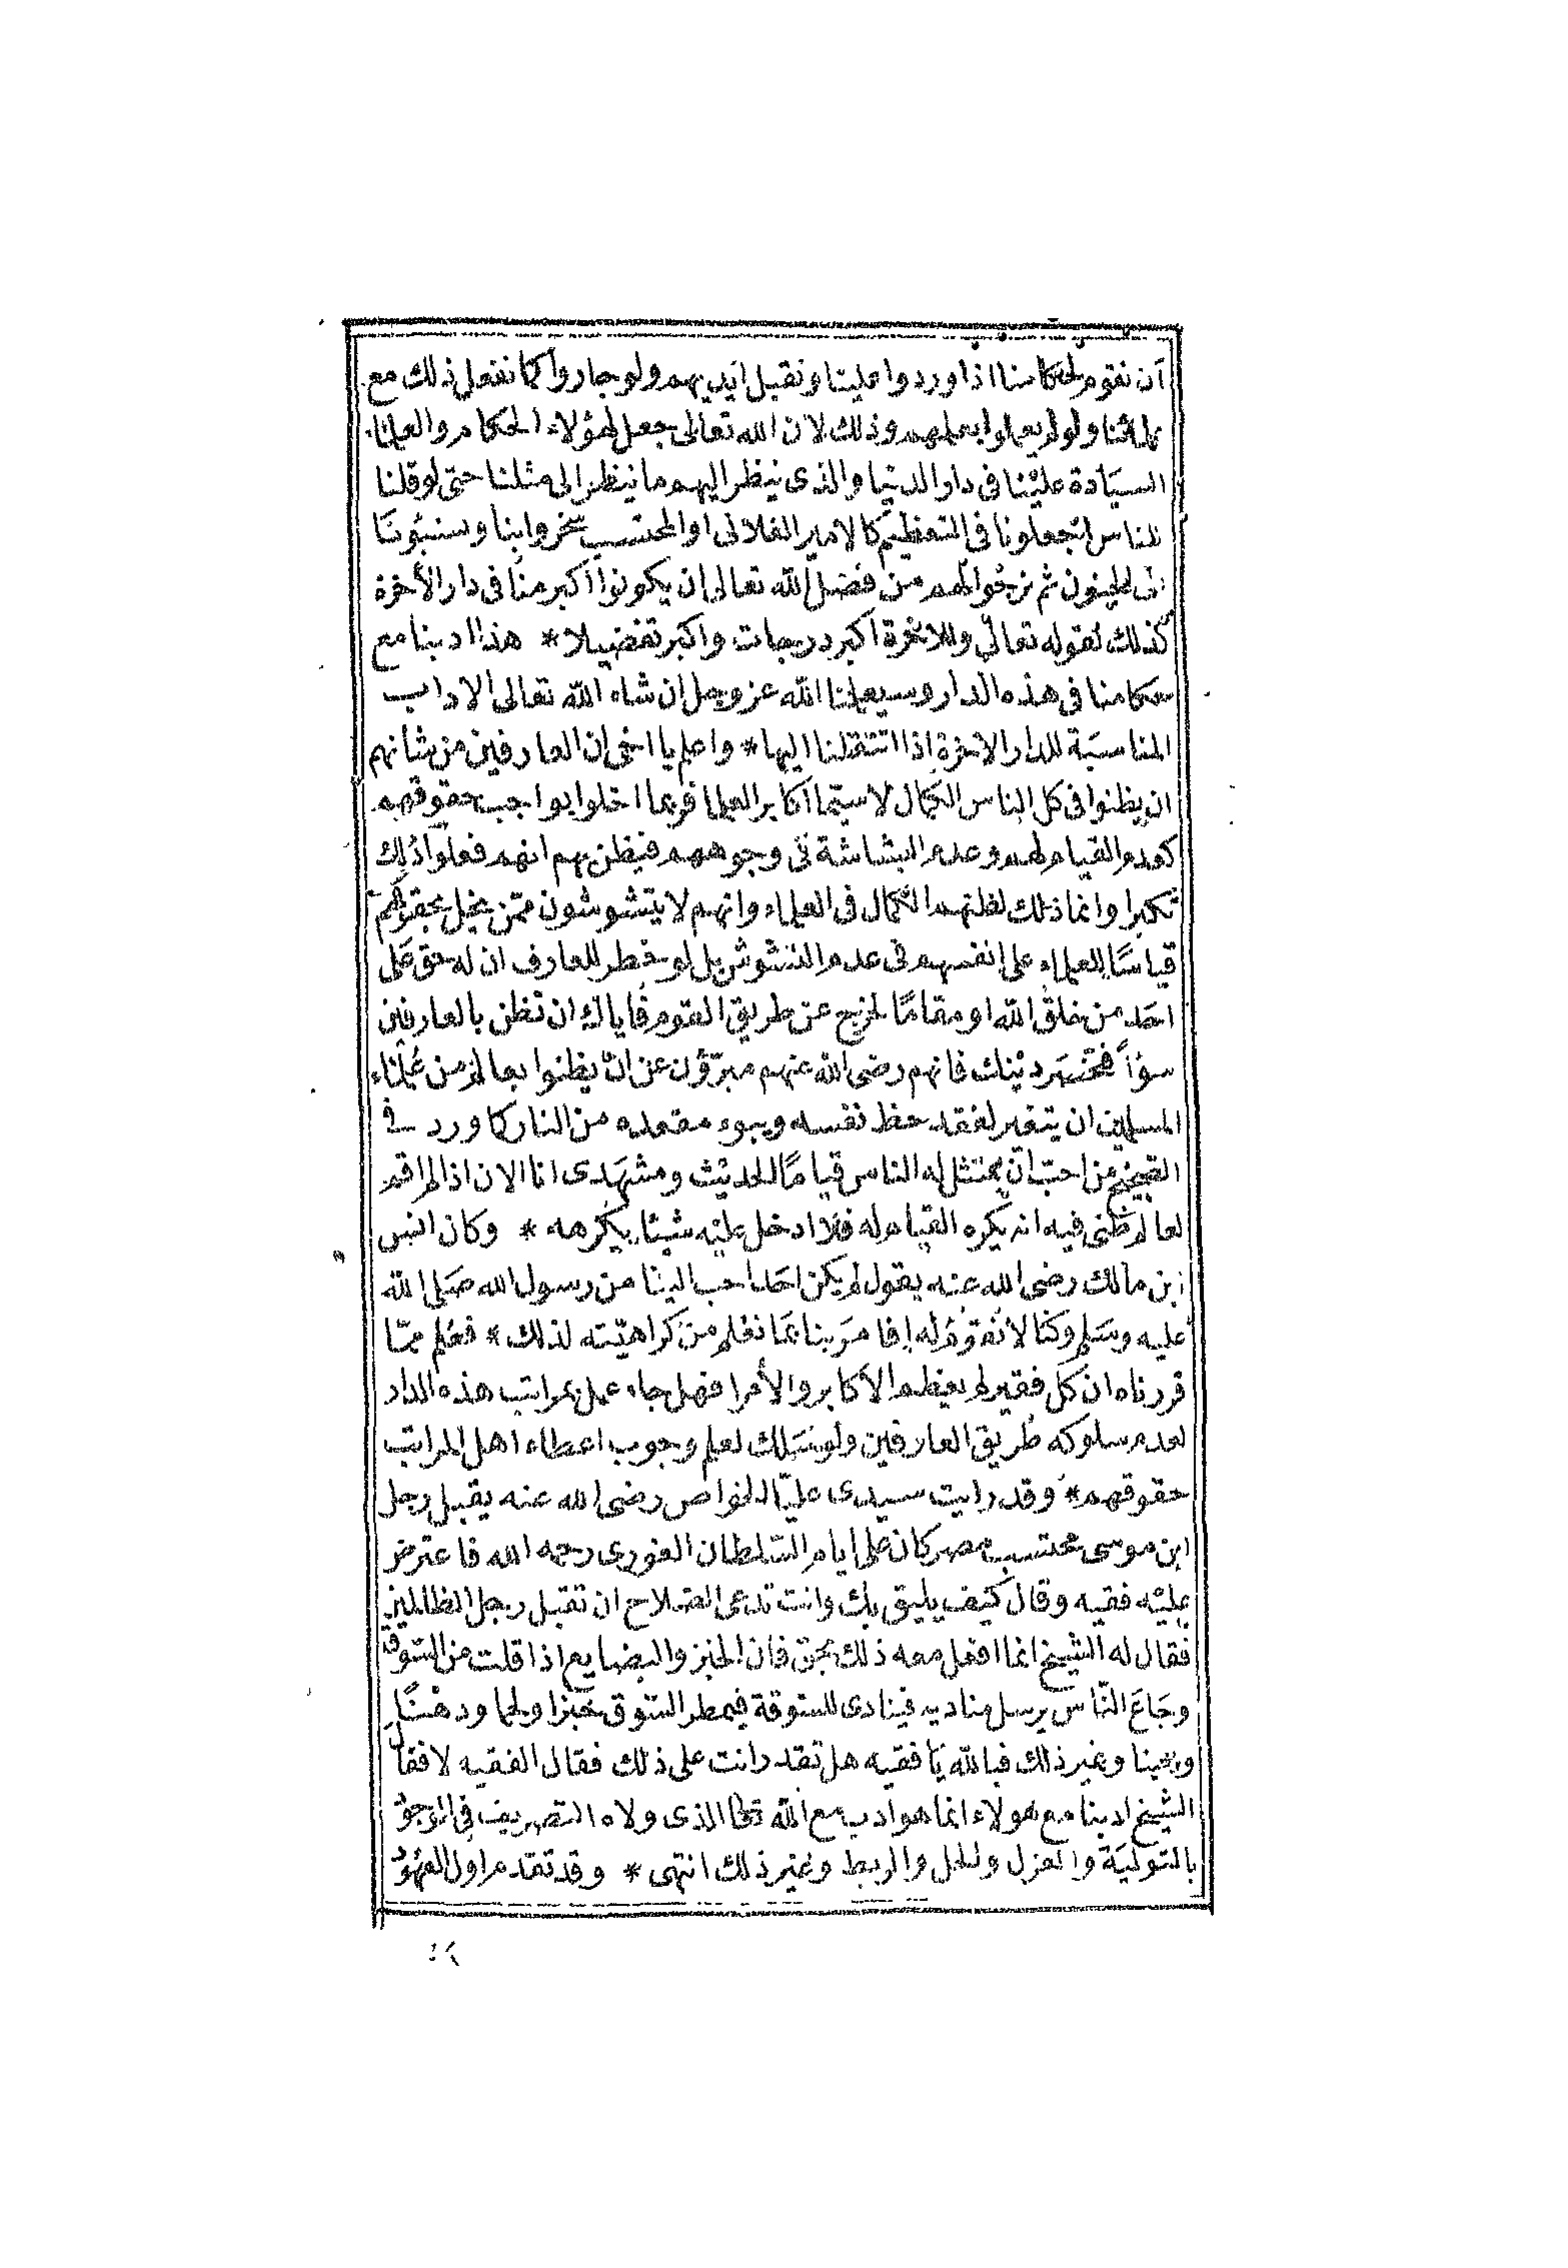 أن نقوم لحكامنا اذا وردوا علينا ونقبل ايديهم ولو جاروا كما نفعل ذلك مع
علمائنا ولو لم يعملوا بعلمهم وذلك لان الله تعالى جعل لهؤلاء الحكام والعلماء
السيادة علينا فى دار الدنيا والذى ينظر اليهم ما ينظر الى مثلنا حتى لو قلنا
للناس اتجعلونا فى التعظيم كالامير الفلانى او المحتسب سخروا بنا وسنبؤنا
الى الجنون ثم نرجوا لهم من فضل الله تعالى ان يكونوا أكبر منا فى دار الأخرة
كذلك لقوله تعالى وللاخرة اكبر درجات واكبر تفضيلا * هذا ادبنا مع
حكامنا فى هذه الدار وسيعلمنا الله عز وجل ان شاء الله تعالى الاداب
المناسبة للدار الاخرة اذا انتقلنا اليها * واعلم يا اخى ان العارفين من شأنهم
ان يظنوا فى كل الناس الكمال لا سيما اكابر العلما فربما اخلوا بواجب حقوقهم
كعدم القيام لهم وعدم البشاشة فى وجوههم فيظن بهم انهم فعلوا ذلك
تكبرا وانما ذلك لظنهم الكمال فى العلماء وانهم لا يتشوشون ممن يخل بحقوقهم
قياسًا للعلماء على انفسهم فى عدم التشوش بل لو خطر للعارف ان له حق على
احد من خلق الله او مقامًا لخرج عن طريق القوم فاياك ان تظن بالعارفين
سوًا فتخسر دينك فانهم رضى الله عنهم مبرؤن عن ان يظنوا بعالم من علماء
المسلمين ان يتغير لفقد حظ نفسه ويبوء مقعده من النار كما ورد فى
الصحيح من احب ان يمتثل له الناس قيامًا الحديث ومشهدى انا الان اذا لم اقم
لعالم ظنى فيه انه يكره القيام له فلا ادخل عليه شيئا يكرهه * وكان انس
ابن مالك رضى الله عنه يقول لم يكن احد احب الينا من رسول الله صلى الله
عليه وسلم وكنا لا نقوم له اذا مر بنا لما نعلم من كراهيته لذلك * فعلم مما
قررناه ان كل فقير لم يعظم الاكابر والأمرا فهل جاء عمل بمراتب هذه الدار
لعدم سلوكه طريق العارفين ولو سلك لعلم وجوب اعطاء اهل المراتب
حقوقهم * وقد رايت سيدى عليًا الخواص رضى الله عنه يقبل رجل
ابن موسى محتسب مصر كان على ايام السلطان الغورى رحمه الله فاعترض
عليه فقيه وقال كيف يليق بك وانت تدعى الصلاح ان تقبل رجل الظالمين
فقال له الشيخ انما افعل معه ذلك بحق فان الخبز والبضايع اذا قلت من السوق
وجاع الناس يرسل مناديه فينادى للسوقة فيمطر السوق خبزا ولحما ودهنًا
وجبنا وغير ذلك فبالله يا فقيه هل تقدر انت على ذلك فقال الفقيه لا فقال
الشيخ ادبنا مع هولاء انما هو ادب مع الله تعالى الذى ولاه التصريف فى الوجود
بالتولية والعزل والحل والربط وغير ذلك انتهى * وقد تقدم اول العهود